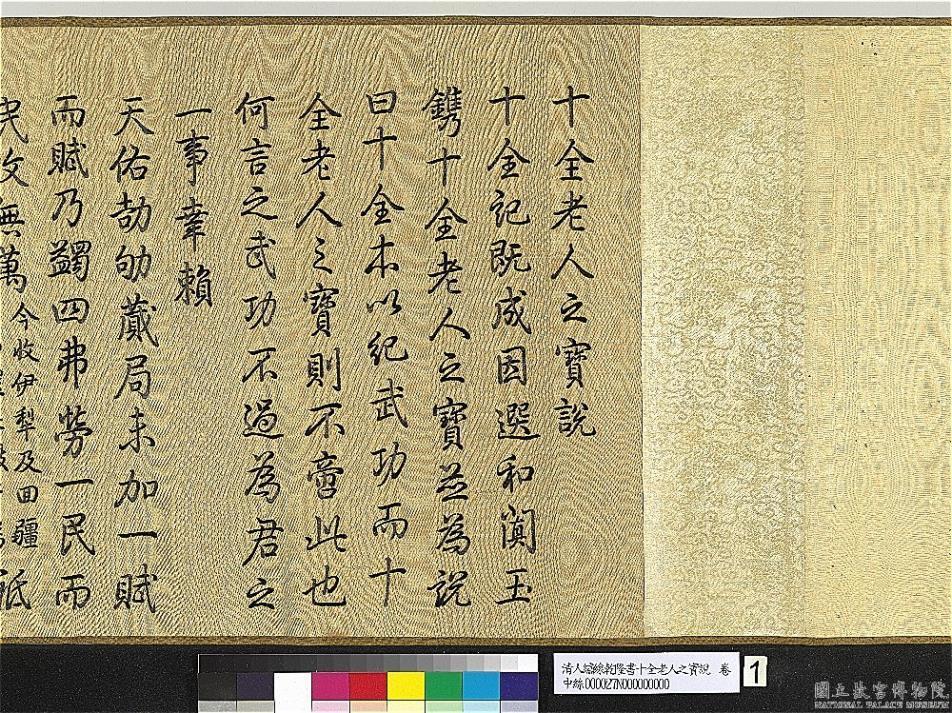 十全老人之寶說
十全記既成因選和闐玉
鐫十全老人之寶並為說
曰十全本以紀武功而十
全老人之寶則不啻此也
何言之武功不過為君之
一事幸賴
天佑劼劬蕆局未加一賦
而賦乃蠲四弗勞一民而
民收無萬今收伊犁及回疆
祗
清人緙絲乾隆書十全老人之寶說 卷
中絲000027N000000000
1
國立故宮博物院
NATIONAL PALACE MUSEUM